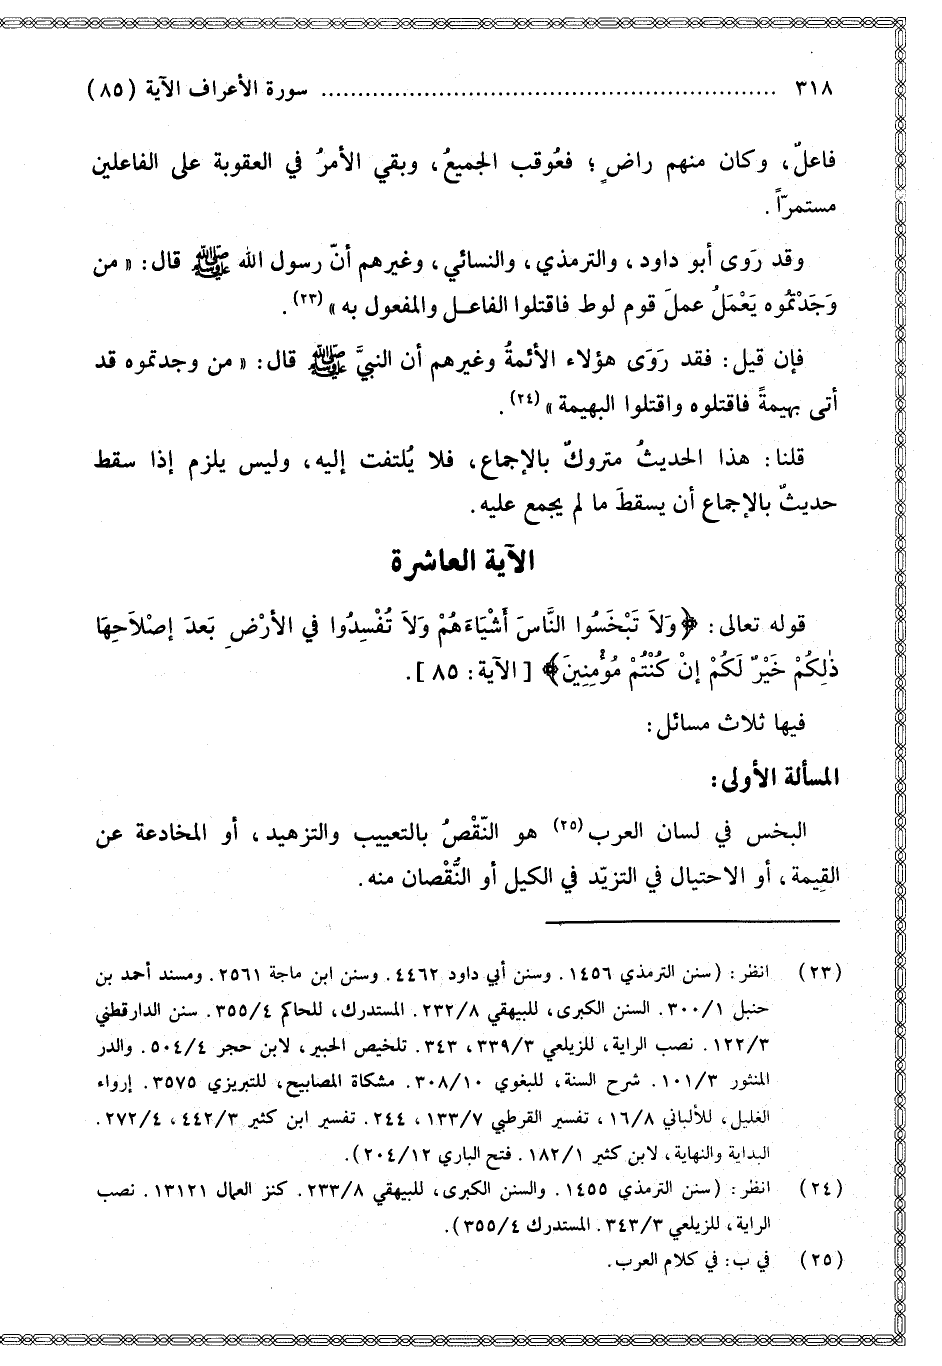 ٣١٨ ........................................................... سورة الأعراف الآية (٨٥)
فاعلٌ، وكان منهم راضٍ؛ فعُوقب الجميعُ، وبقي الأمرُ في العقوبة على الفاعلين
مستمرّاً.
وقد رَوَى أبو داود، والترمذي، والنسائي، وغيرهم أنّ رسول الله ﷺ قال: « من
وَجَدْتمُوه يَعْمَلُ عملَ قوم لوط فاقتلوا الفاعل والمفعول به »(٢٣).
فإن قيل: فقد رَوَى هؤلاء الأئمةُ وغيرهم أن النبيَّ ﷺ قال: « من وجدتموه قد
أتى بهيمةً فاقتلوه واقتلوا البهيمة »(٢٤).
قلنا: هذا الحديثُ متروكٌ بالإجماع، فلا يُلتفت إليه، وليس يلزم إذا سقط
حديثٌ بالإجماع أن يسقطَ ما لم يجمع عليه.
الآية العاشرة
قوله تعالى: ﴿وَلاَ تَبْخَسُوا النَّاسَ أَشْيَاءَهُمْ وَلاَ تُفْسِدُوا في الأرْضِ بَعدَ إصْلاَحِهَا
ذٰلِكُمْ خَيْرٌ لَكُمْ إنْ كُنْتُمْ مُؤْمِنِينَ﴾ [ الآية: ٨٥ ].
فيها ثلاث مسائل:
المسألة الأولى:
البخس في لسان العرب(٢٥) هو النّقْصُ بالتعييب والتزهيد، أو المخادعة عن
القِيمة، أو الاحتيال في التزيّد في الكيل أو النُّقْصان منه.
(٢٣) انظر: (سنن الترمذي ١٤٥٦. وسنن أبي داود ٤٤٦٢. وسنن ابن ماجة ٢٥٦١. ومسند أحمد بن
حنبل ٣٠٠/١. السنن الكبرى، للبيهقي ٢٣٢/٨. المستدرك، للحاكم ٣٥٥/٤. سنن الدارقطني
١٢٢/٣. نصب الراية، للزيلعي ٣٣٩/٣، ٣٤٣. تلخيص الحبير، لابن حجر ٥٠٤/٤. والدر
المنثور ١٠١/٣. شرح السنة، للبغوي ٣٠٨/١٠. مشكاة المصابيح، للتبريزي ٣٥٧٥. إرواء
الغليل، للألباني ١٦/٨، تفسير القرطبي ١٣٣/٧، ٢٤٤. تفسير ابن كثير ٤٤٢/٣، ٢٧٢/٤.
البداية والنهاية، لابن كثير ١٨٢/١. فتح الباري ٢٠٤/١٢).
(٢٤) انظر: (سنن الترمذي ١٤٥٥. والسنن الكبرى، للبيهقي ٢٣٣/٨. كنز العمال ١٣١٢١. نصب
الراية، للزيلعي ٣٤٣/٣. المستدرك ٣٥٥/٤).
(٢٥) في ب: في كلام العرب.